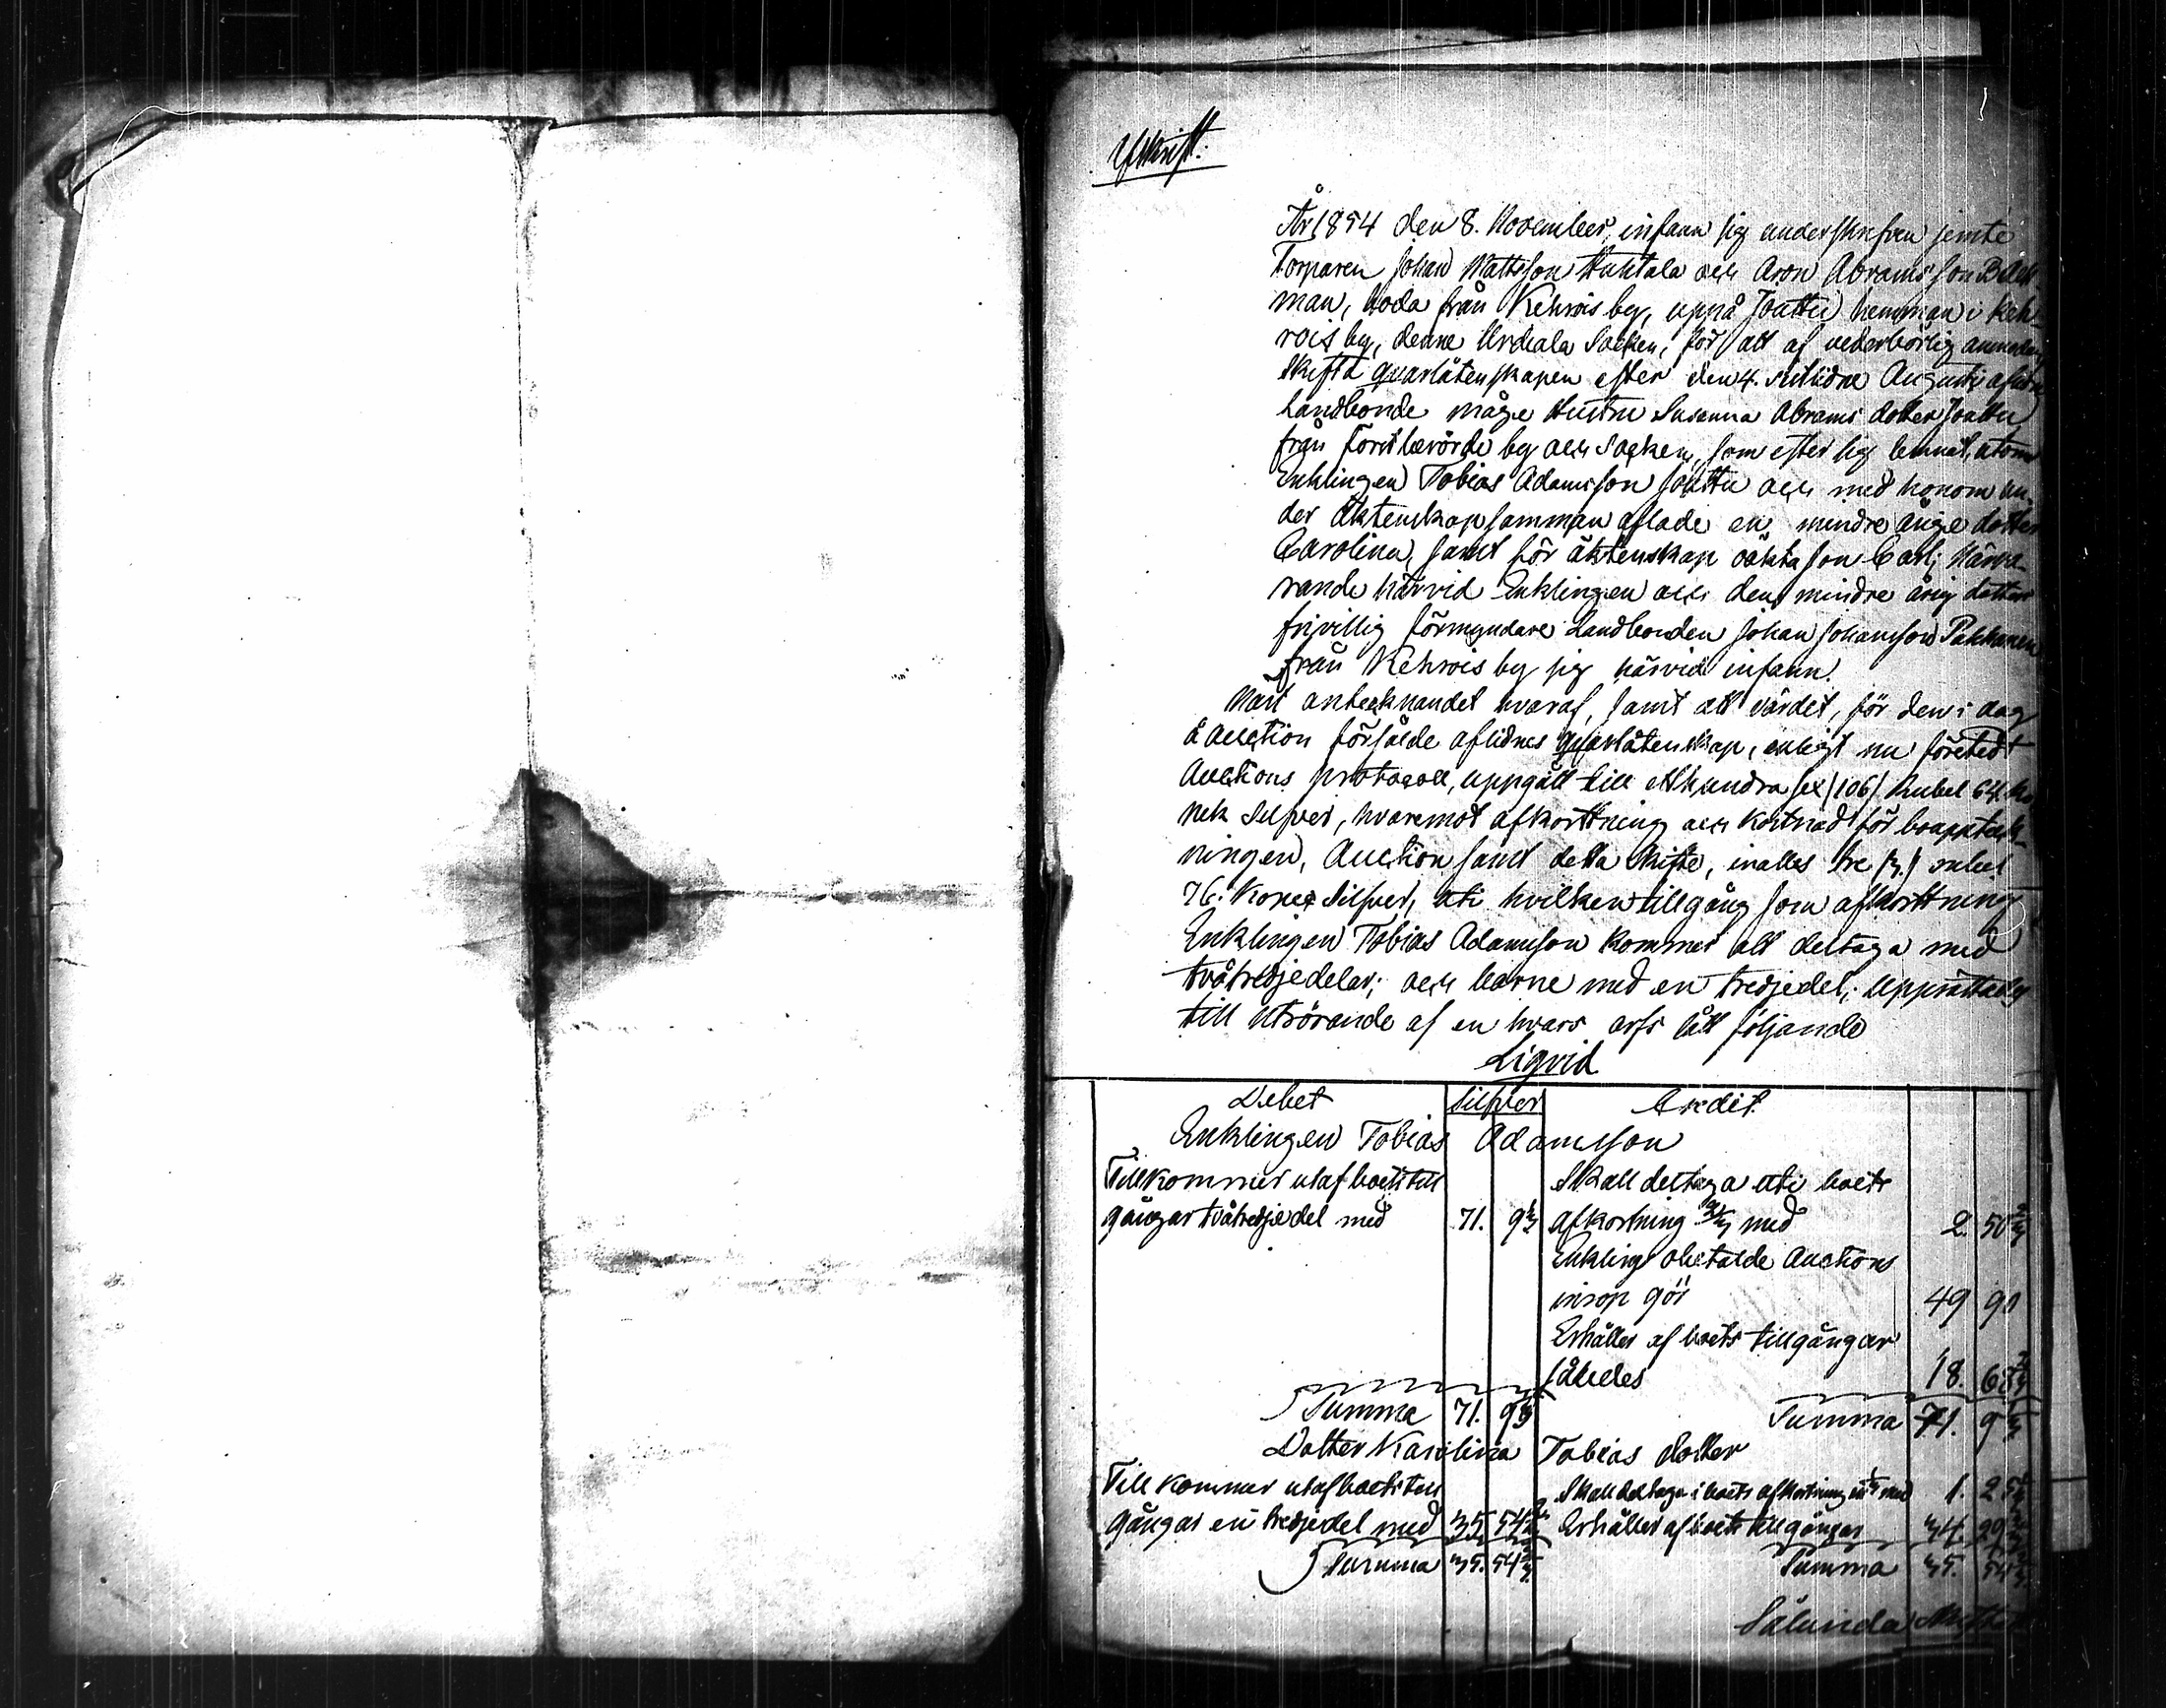 Afskrift.
År 1854 den 8. November, infann sig underskrifven jemte
Torparen Johan Mattsson Huhtala och Aron Abramsson Back-
man, boda från Kehrois by, uppå Jouttu hemman i Keh-
rois by, denne Urdiala Socken, för att af vederbörlig anmodan,
Skifta qvarlåtenskapen efter den 4. sistlidne Augusti aflidne
Landbonde mågs Hustru Susanna Abrams dotter Jouttu
från by och Socken, som efter sig lemnat, utom
Enklingen Tobias Adamsson Jouttu och med honom un-
der äktenskap samman aflade en mindre årige dotter
Carolina, samt för äktenskap oäkta son Carl; Närva-
rande härvid Enklingen och den mindre årig dotters
frivillig förmyndare Landbonden Johan Johansson Pakkanen
från Kehrois by sig härvid infann.
Vart antecknandet hvaraf, samt att värdet, för den i dag
å Auction försålde aflidnes qvarlåtenskap, enligt nu företedt
Auctions protocoll, uppgått till etthundra sex (106) Rubel 64. ko-
pek Silfver, hvaremot afkorttning och kostnad för bouppteck-
ningen, Auction samt detta skifte, inalles tre (3.) rubel
76. kopek Silfver, uti hvilken tillgång som afkorttning
Enklingen Tobias Adamsson kommer att deltaga med
tvåtredjedelar; och barne med en tredjedel; Upprättades
till utrörande af en hvars arfs lått följande
Liqvid
Debet Silfver Kredit
Enklingen Tobias Adamsson
Tillkommer utaf boets till
gångar tvåtredjedel med 71. 9 1/3
Skall deltaga uti boets
afkortning 2/3 med 2. 50 2/3
Enkling obetalde Auctions
inrop gör 49 90
Erhåller af boets tillgångar
således 18. 68 2/3
Summa 71. 9 1/3 Summa 71. 9 1/3
Dotter Karolina Tobias dotter
Till kommer utaf boets till
gångar en tredjedel med 35 54 2/3
Skall deltaga i boets afkortning 1/3 med 1. 25 1/3
Erhåller af boets tillgångar 34. 29 1/3
Summa 35. 54 2/3 Summa 35. 54 2/3
Sålunda